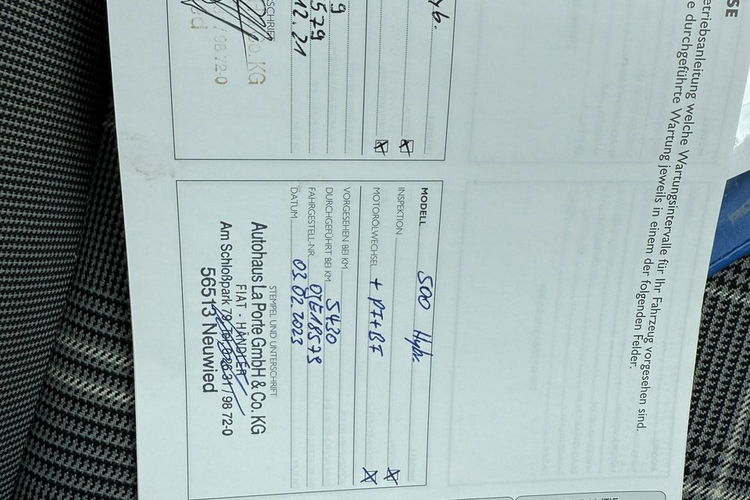 SE
etriebsanleitung welche Wartungsintervalle für Ihr Fahrzeug vorgesehen sind.
e durchgeführte Wartung jeweils in einem der folgenden Felder.
yb.
9
579
12.21
SCHRIFT
o. KG
/ 98 72-0
MODELL 500 Hyb.
INSPEKTION
MOTORÖLWECHSEL + PF + BF
VORGESEHEN BEI KM
DURCHGEFÜHRT BEI KM 5430
FAHRGESTELL-NR.
DATUM 03.02.2023
STEMPEL UND UNTERSCHRIFT
Autohaus La Porte GmbH & Co. KG
FIAT - HÄNDLER
Am Schloßpark 79 / 98 72-0
56513 Neuwied